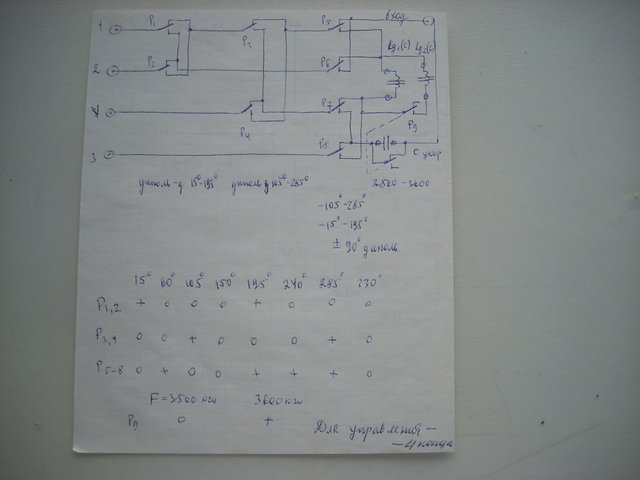 1 P1 P5 Вход
2 P2 P6
P7
P4 P9
3 P8
диполь-д 15°-195° диполь д 105°-285° 3500-3600
-105°-285°
-15°-195°
± 90° диполь
15° 60° 105° 150° 195° 240° 285° 330°
P1,2 + 0 0 0 + 0 0 0
P3,4 0 0 + 0 0 0 + 0
P5-8 0 + 0 0 + + + 0
F=3500 кгц 3600 кгц
P9 0 +
Для управления -
- 4 конца